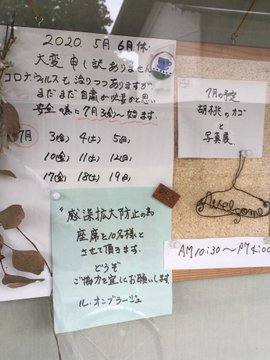 2020 5月 6月休
大変申し訳ありません
コロナウィルスも治りつつありますが
まだまだ自粛が必要かと思い
安全の為に7月3(金)〜始ます。
7月 3(金) 4(土) 5(日)
10(金) 11(土) 12(日)
17(金) 18(土) 19(日)
"感染拡大防止の為
座席を10名様と
させて頂きます。
どうぞ
ご協力を宜しくお願いします
ル・オンブラージュ
7月の予定
胡桃のカゴ
と
写真展
Welcome
AM10:30〜PM4:00